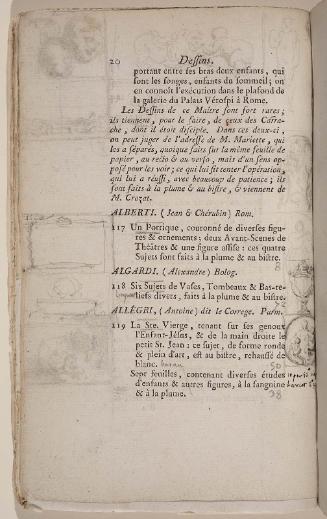 20 Dessins.
portant entre ses bras deux enfants, qui
sont les songes, enfants du sommeil; on
en connoît l'exécution dans le plafond de
la galerie du Palais Vérospi à Rome.
Les Dessins de ce Maître sont fort rares;
ils tiennent, pour le faire, de ceux des Carra-
che, dont il étoit disciple. Dans ces deux-ci,
on peut juger de l'adresse de M. Mariette, qui
les a séparés, quoique faits sur la même feuille de
papier, au recto & au verso, mais d'un sens op-
posé pour les voir; ce qui lui fit tenter l'opération,
qui lui a réussi, avec beaucoup de patience; ils
sont faits à la plume & au bistre, & viennent de
M. Crozat.
ALBERTI. (Jean & Chérubin) Rom.
117 Un Portique, couronné de diverses figu-
res & ornements; deux Avant-Scenes de
Théâtres & une figure assise: ces quatre
Sujets sont faits à la plume & au bistre.
ALGARDI. (Alexandre) Bolog.
118 Six Sujets de Vases, Tombeaux & Bas-re-
liefs divers, faits à la plume & au bistre.
ALLEGRI, (Antoine) dit le Correge. Parm.
119 La Ste. Vierge, tenant sur ses genoux
l'Enfant-Jésus, & de la main droite le
petit St. Jean: ce sujet, de forme ronde
& plein d'art, est au bistre, rehaussé de
blanc.
Sept feuilles, contenant diverses études
d'enfants & autres figures, à la sanguine
& à la plume.